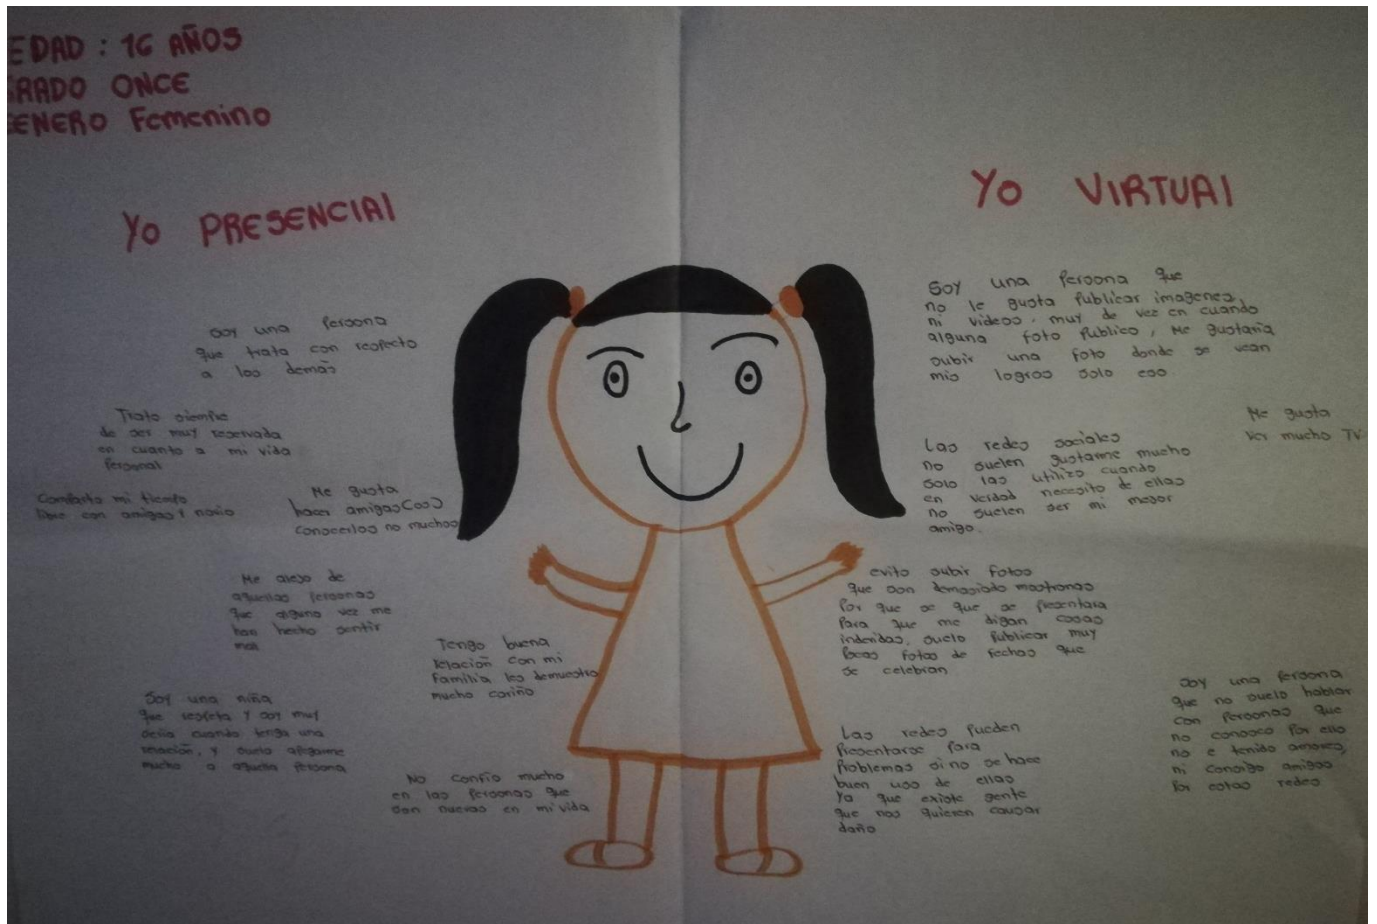 EDAD : 16 AÑOS
GRADO ONCE
GENERO Femenino
Yo PRESENCIAl
soy una persona
que trata con respecto
a los demás
Trato siempre
de ser muy reservada
en cuanto a mi vida
personal
Comparto mi tiempo
libre con amigas y novio
Me gusta
hacer amigas(os)
conocerlos no muchos
Me alejo de
aquellas personas
que alguna vez me
han hecho sentir
mal
Tengo buena
relación con mi
familia les demuestro
mucho cariño
Soy una niña
que respeta y soy muy
cuando tengo una
relación, y suelo apegarme
mucho a aquella persona
No confío mucho
en las personas que
son nuevas en mi vida
Yo VIRTUAl
Soy una persona que
no le gusta publicar imagenes
ni videos. muy de vez en cuando
alguna foto publico, Me gustaria
subir una foto donde se vean
mis logros solo eso
Me gusta
ver mucho TV
Las redes sociales
no suelen gustarme mucho
solo las utilizo cuando
en verdad necesito de ellas
no suelen ser mi mejor
amigo.
evito subir fotos
que son demasiado mostronas
por que se que se presentara
para que me digan cosas
indevidas, suelo publicar muy
pocas fotos de fechas que
se celebran
Las redes pueden
presentarse para
problemas si no se hace
buen uso de ellas
ya que existe gente
que nos quieren causar
daño
soy una persona
que no suelo hablar
con personas que
no conosco por ello
no e tenido amores,
ni consigo amigos
por estas redes